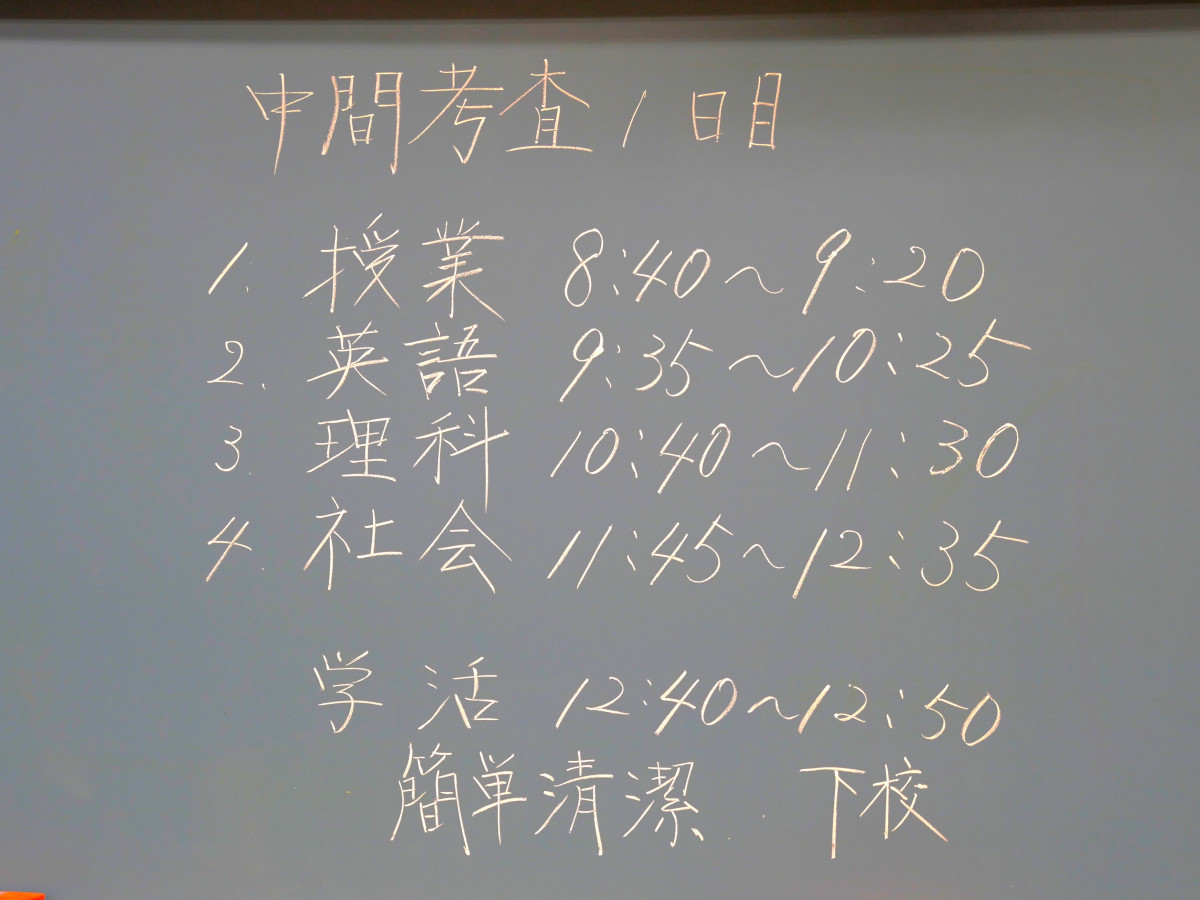 中間考査1日目
1. 授業 8:40~9:20
2. 英語 9:35~10:25
3. 理科 10:40~11:30
4. 社会 11:45~12:35
学活 12:40~12:50
簡単清潔 下校